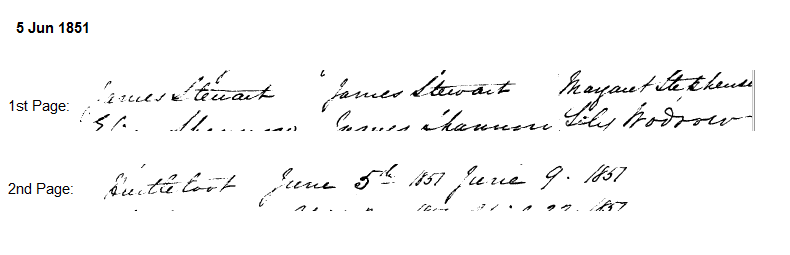 5 Jun 1851
1st Page: James Stewart James Stewart Margaret Stephenso
Shannon James Shannon Lily Wodrow
2nd Page: June 5th 1851 June 9. 1851